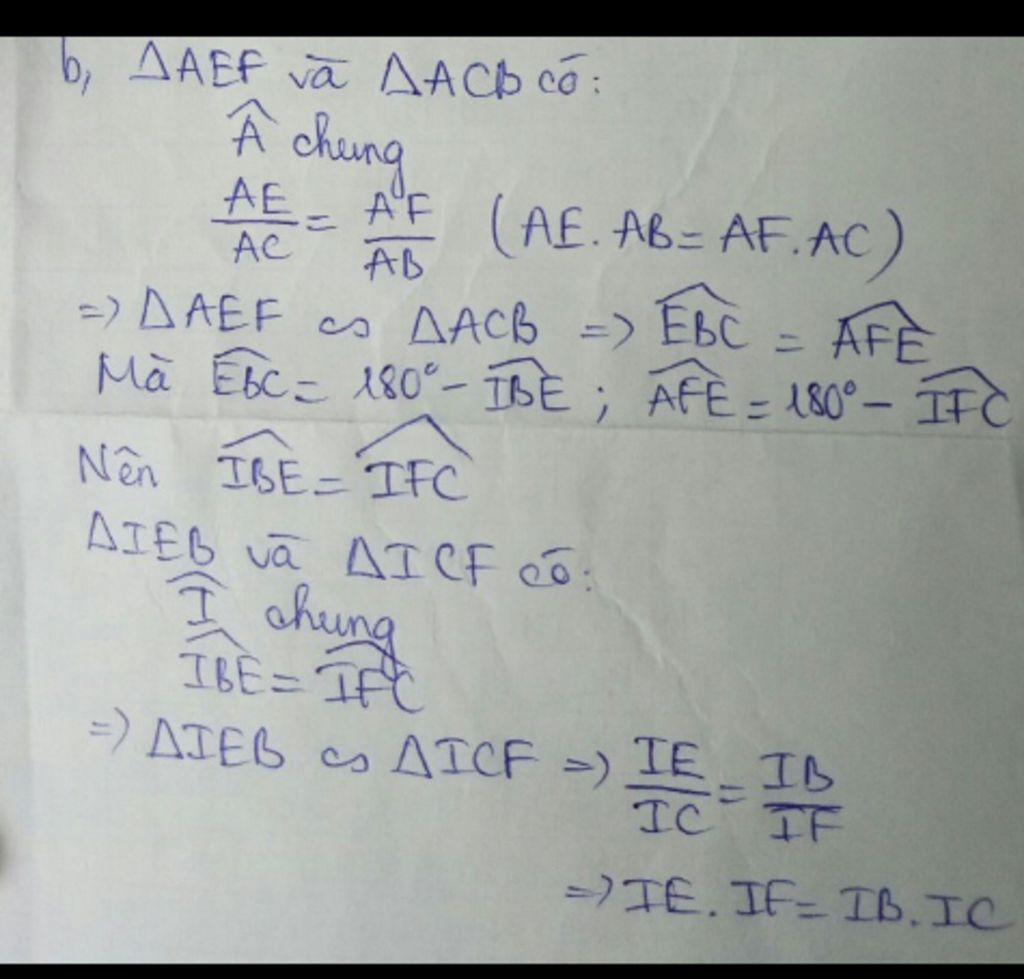 b, ΔAEF và ΔACB có:
Â chung
AE/AC = AF/AB (AE. AB = AF. AC)
=> ΔAEF ∽ ΔACB => \widehat{EBC} = \widehat{AFE}
Mà \widehat{EBC} = 180° - \widehat{IBE} ; \widehat{AFE} = 180° - \widehat{IFC}
Nên \widehat{IBE} = \widehat{IFC}
ΔIEB và ΔICF có:
\widehat{I} chung
\widehat{IBE} = \widehat{IFC}
=> ΔIEB ∽ ΔICF => IE/IC = IB/IF
=> IE. IF = IB. IC